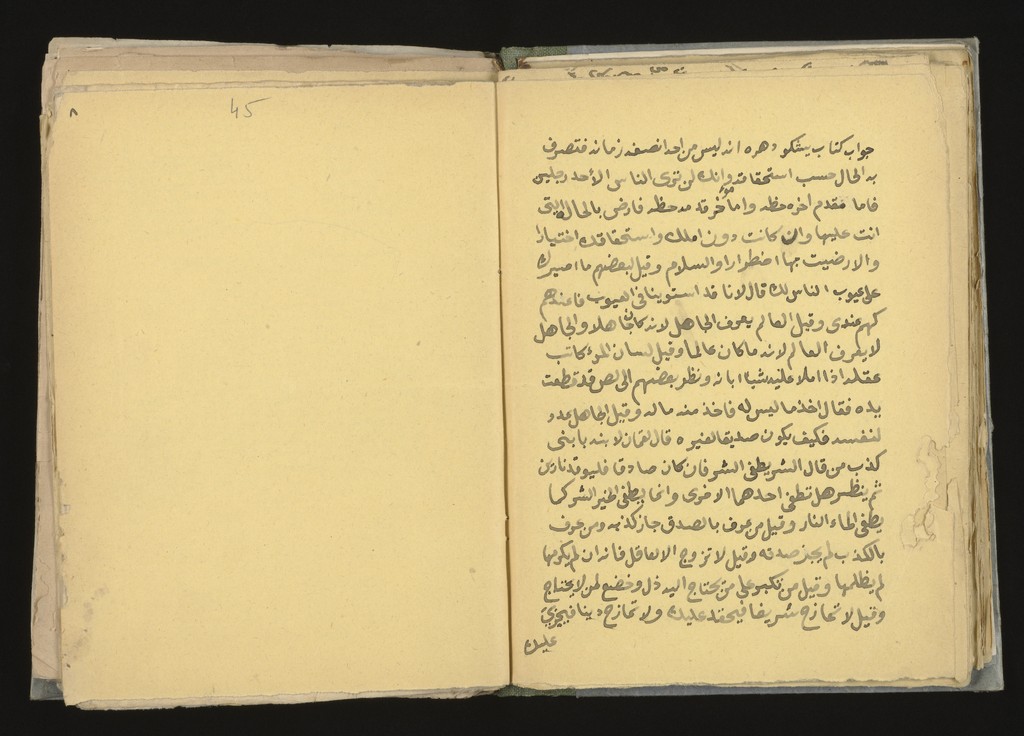 جواب كتاب يشكو دهره انه ليس من احد انصفه زمانه فتصرف
به الحال حسب استحقاقه وانك لن ترى الناس الا أحد رجلين
فاما مقدم اخره حظه واما موخر قدمه حظه فارض بالحال التى
انت عليها وان كانت دون املك واستحقاقك اختيارا
والا رضيت بها اضطرارا والسلام وقيل لبعضهم ما اصبرك
على عيوب الناس لك قال لانا قد استوينا فى العيوب فاعندهم
كهم عندى وقيل العالم يعرف الجاهل لانه كان جاهلا والجاهل
لا يعرف العالم لانه ما كان عالما وقيل لسان المرء كاتب
عقله اذا املا عليه شيئا ابانه ونظر بعضهم الى لص قد قطعت
يده فقال اخذ ما ليس له فاخذ منه ماله وقيل الجاهل عدو
لنفسه فكيف يكون صديقا لغيره قال لقمان لابنه يا بنى
كذب من قال الشر يطفى الشر فان كان صادقا فليوقد نارين
ثم ينظر هل تطفى احدهما الاخرى وانما يطفى الخير الشر كما
يطفى الماء النار وقيل من عرف بالصدق جاز كذبه ومن عرف
بالكذب لم يجز صدقه وقيل لا تزوج الا لعاقل فانه ان لم يكرمها
لم يظلمها وقيل من تكبر على من يحتاج اليه ذل وخضع لمن لا يحتاج
وقيل لا تمازح شريفا فيحقد عليك ولا تمازح دينا فيجترئ
عليك
45
٨